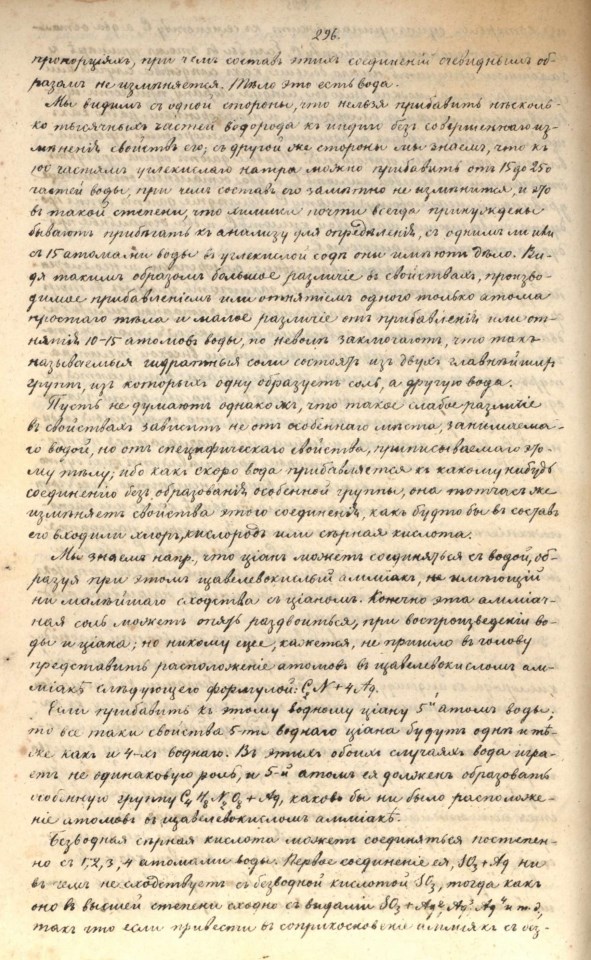 296.
пропорціяхъ, при чемъ составъ этихъ соединеній очевиднымъ об-
разомъ не измѣняется. Тѣло это есть вода.
Мы видимъ съ одной стороны, что нельзя прибавить нѣсколь-
ко тысячныхъ частей водорода къ индиго безъ совершеннаго из-
мѣненія свойствъ его; съ другой же стороны мы знаемъ, что къ
100 частямъ углекислаго натра можно прибавить отъ 15 до 250
частей воды, при чемъ составъ его замѣтно не измѣнится, и это
въ такой степени, что химики почти всегда принуждены
бываютъ прибѣгать къ анализу для опредѣленія, съ однимъ ли или
съ 15 атомами воды въ углекислой содѣ они имѣютъ дѣло. Ви-
дя такимъ образомъ большое различіе въ свойствахъ, произво-
димое прибавленіемъ или отнятіемъ одного только атома
простаго тѣла и малое различіе отъ прибавленія или от-
нятія 10-15 атомовъ воды, по неволѣ заключаютъ, что такъ
называемыя гидратныя соли состоятъ изъ двухъ главнѣйшихъ
группъ, изъ которыхъ одну образуетъ соль, а другую вода.
Пусть не думаютъ однакожъ, что такое слабое различіе
въ свойствахъ зависитъ не отъ особеннаго мѣста, занимаема-
го водой, но отъ специфическаго свойства, приписываемаго это-
му тѣлу; ибо какъ скоро вода прибавляется къ какому нибудь
соединенію безъ образованія особенной группы, она тотчасъ же
измѣняетъ свойства этого соединенія, какъ будто бы въ составъ
его входили хлоръ, кислородъ или сѣрная кислота.
Мы знаемъ напр., что ціанъ можетъ соединяться съ водой, об-
разуя при этомъ щавелевокислый амміакъ, не имѣющій
ни малѣйшаго сходства съ ціаномъ. Конечно эта амміач-
ная соль можетъ опять раздвоиться, при воспроизведеніи во-
ды и ціана; но никому еще, кажется, не пришло въ голову
представить расположеніе атомовъ въ щавелевокисломъ ам-
міакѣ слѣдующего формулой: C₄N + 4Aq.
Если прибавить къ этому водному ціану 5й атомъ воды,
то все таки свойства 5-ти воднаго ціана будутъ одни и тѣ-
же какъ и 4-хъ воднаго. Въ этихъ обоихъ случаяхъ вода игра-
етъ не одинаковую роль, и 5-й атомъ ея долженъ образовать
особенную группу C₄H₈N₂O₂ + Aq, каково бы ни было расположе-
ніе атомовъ въ щавелевокисломъ амміакѣ.
Безводная сѣрная кислота можетъ соединяться постепен-
но съ 1, 2, 3, 4 атомами воды. Первое соединеніе ея, SO₃ + Aq ни
въ чемъ не сходствуетъ съ безводной кислотой SO₃, тогда какъ
оно въ высшей степени сходно съ видами SO₃ + Aq², Aq³ Aq⁴ и т. д.,
такъ что если привести въ соприкосновеніе амміакъ съ без-